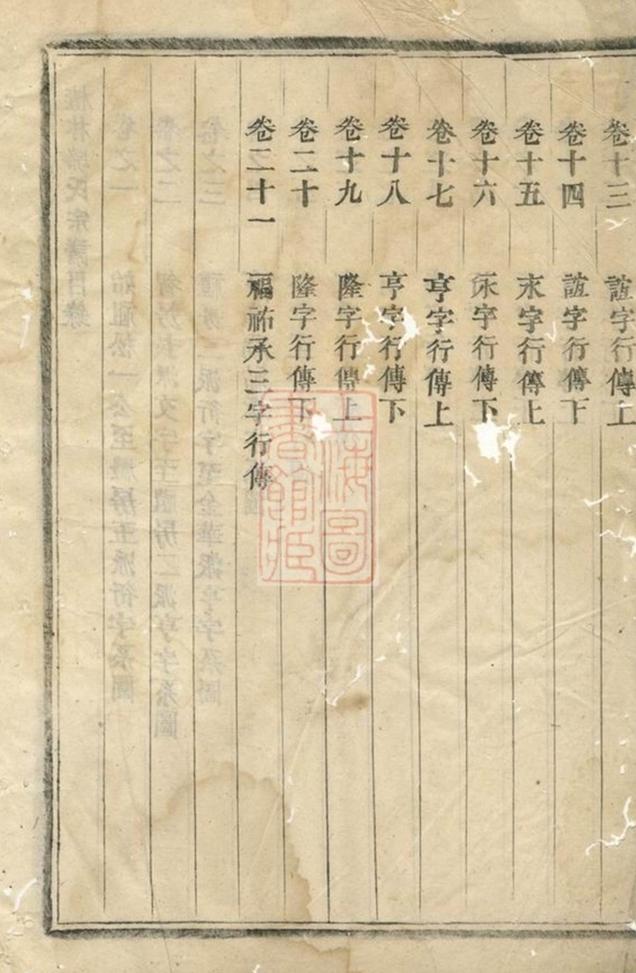 卷十三 誼字行傳上
卷十四 誼字行傳下
卷十五 永字行傳上
卷十六 永字行傳下
卷十七 亨字行傳上
卷十八 亨字行傳下
卷十九 隆字行傳上
卷二十 隆字行傳下
卷二十一 福祐承三字行傳
上海圖
書館藏